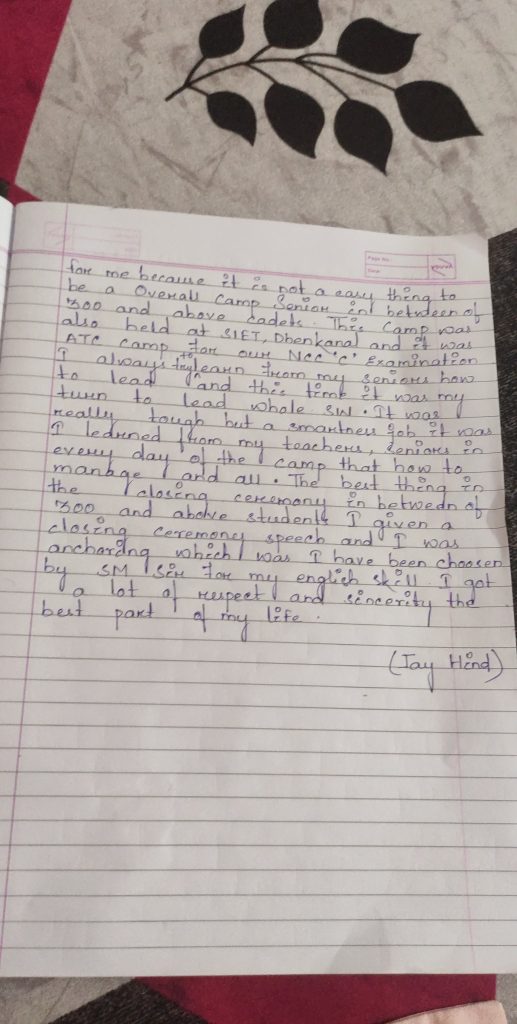 Page No.
Date
for me because it is not a easy thing to
be a Overall Camp Senior in between of
300 and above cadets. This camp was
also held at SIET, Dhenkanal and it was
ATC camp for our NCC 'C' Examination
I always try to learn from my seniors how
to lead and this time it was my
turn to lead whole SW. It was
really tough but a smartness job it was
I learned from my teachers, seniors in
every day of the camp that how to
manage and all. The best thing in
the closing ceremony in between of
300 and above students I given a
closing ceremony speech and I was
anchoring which was I have been choosen
by SM Sir for my english skill I got
a lot of respect and sincerity the
best part of my life.
(Jay Hind)